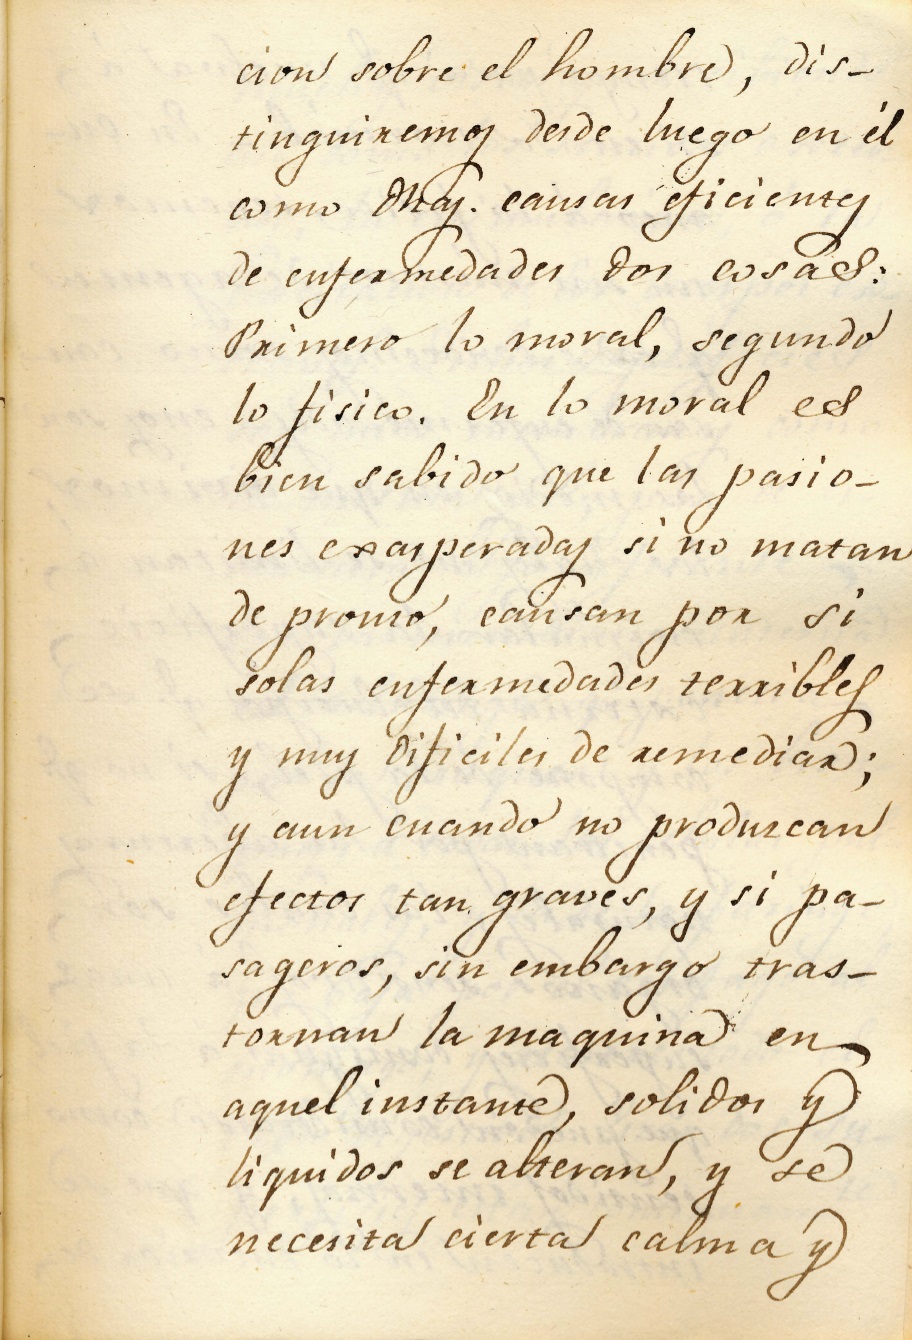 cion sobre el hombre, dis-
tinguiremos desde luego en él
como causas eficientes
de enfermedades dos cosas:
Primero lo moral, segundo
lo fisico. En lo moral es
bien sabido que las pasio-
nes exasperadas si no matan
de pronto, causan por si
solas enfermedades terribles
y muy dificiles de remediar;
y aun cuando no produzcan
efectos tan graves, y si pa-
sageros, sin embargo tras-
tornan la maquina en
aquel instante, solidos y
liquidos se alteran, y se
necesita cierta calma y